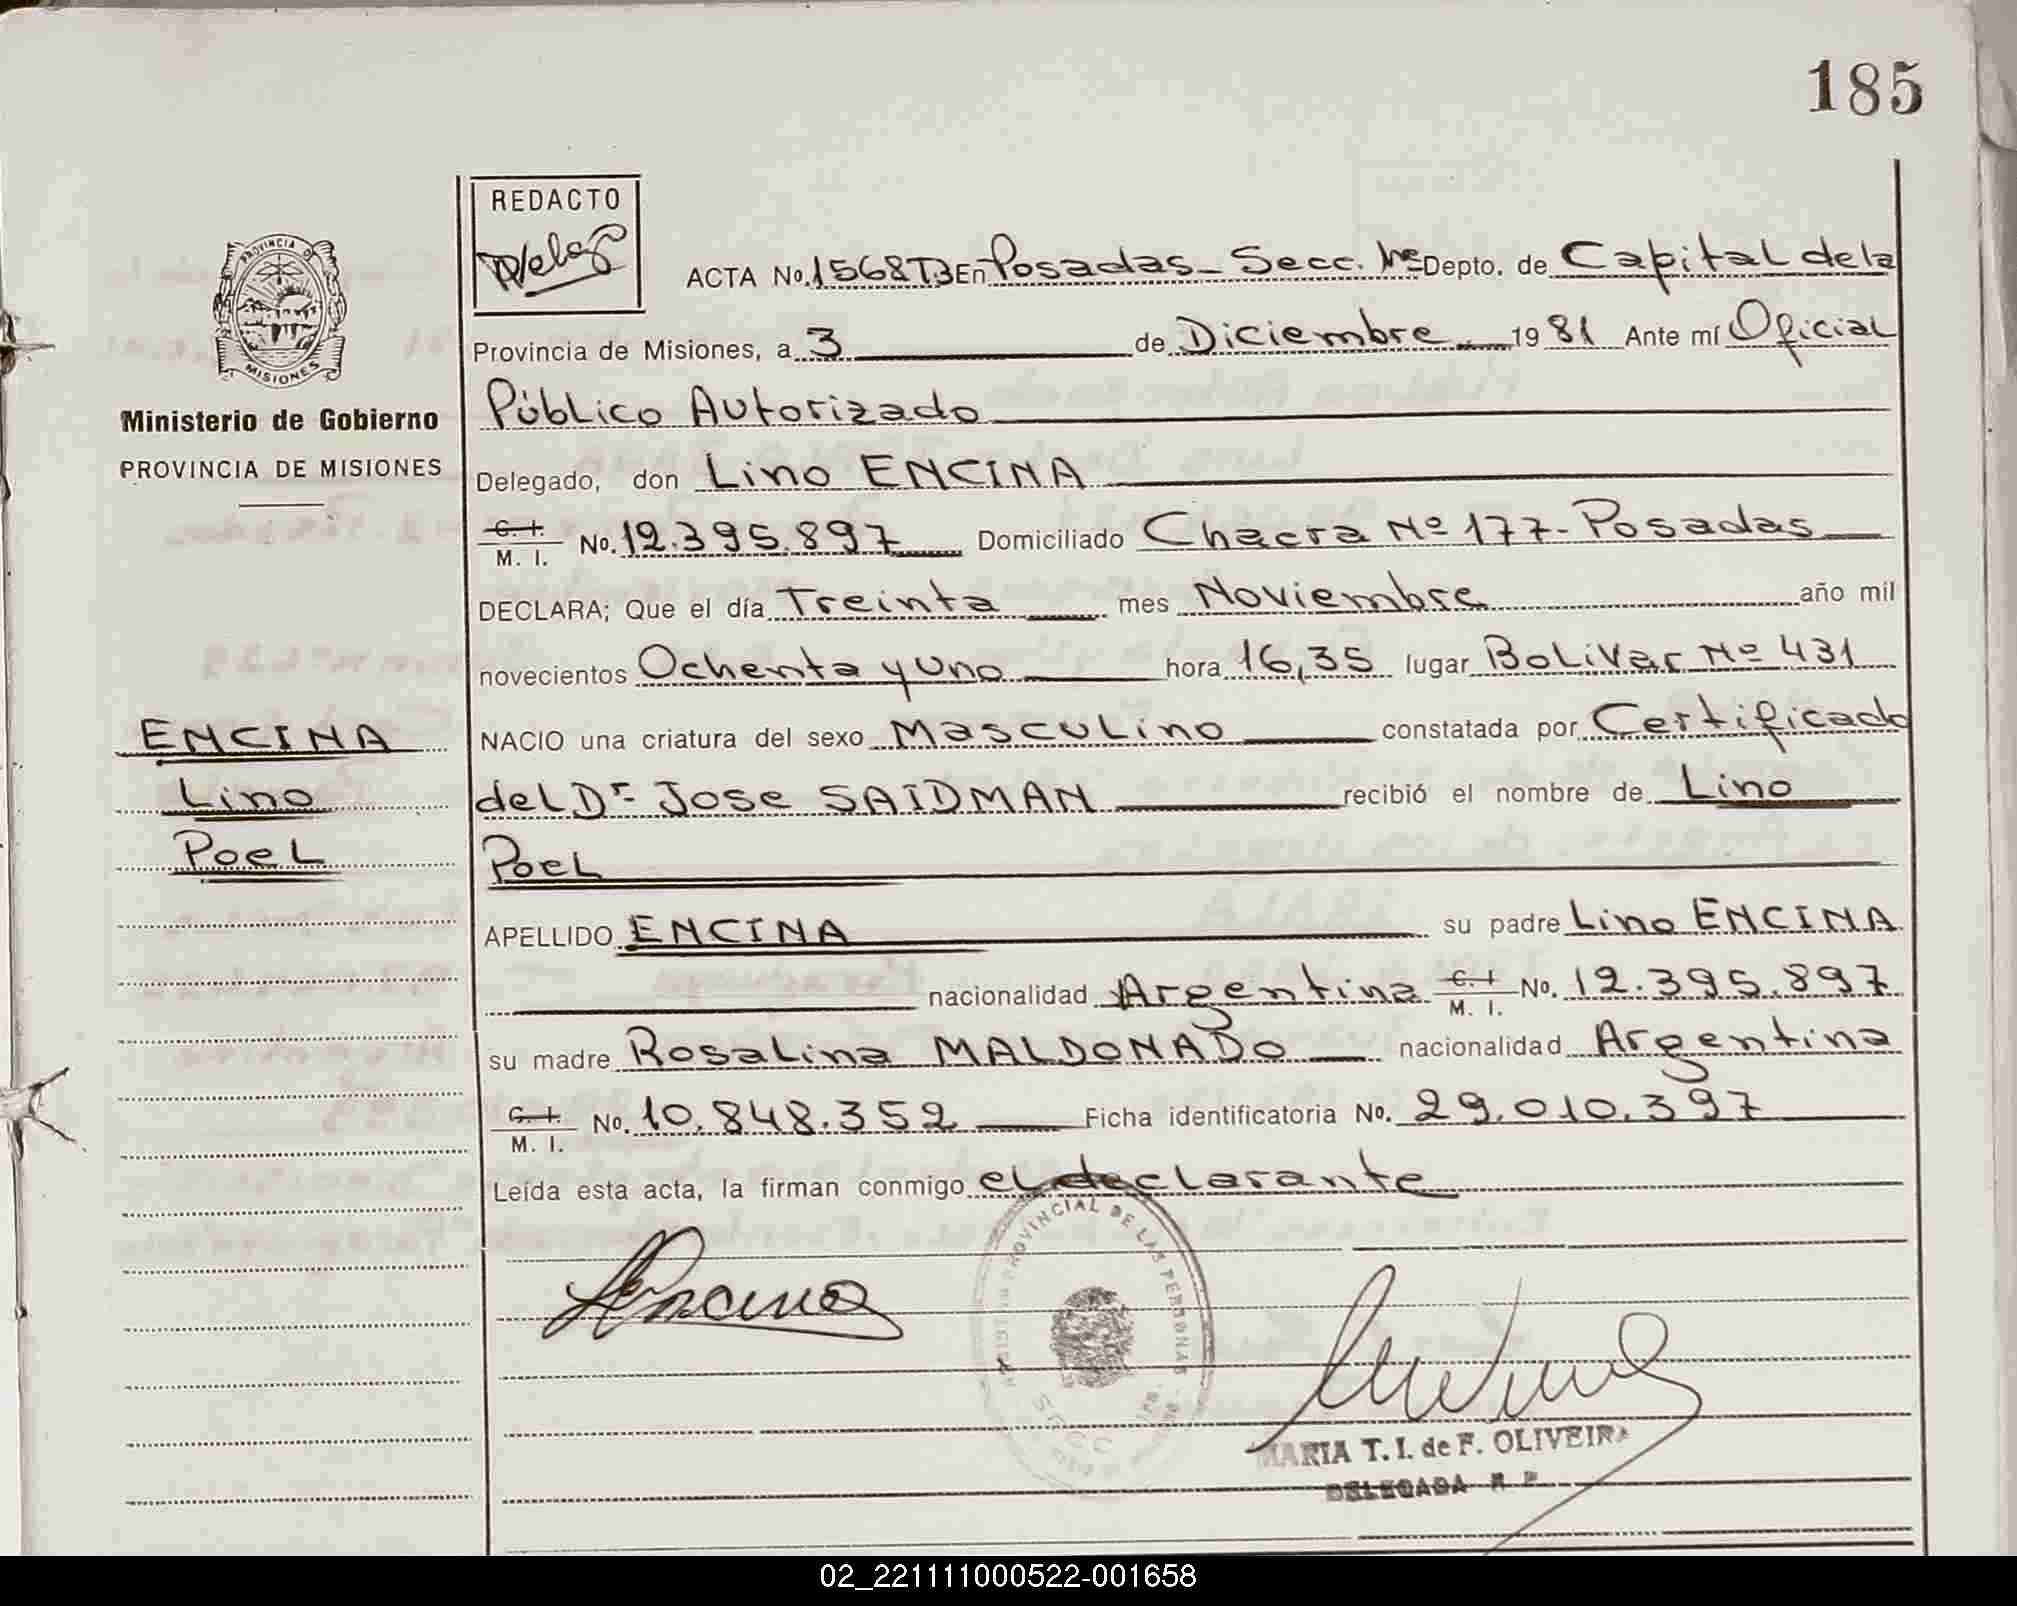 185
REDACTO
ACTA No. 1568T3 En Posadas - Secc. 1ra Depto. de Capital de la
Provincia de Misiones, a 3 de Diciembre 1981 Ante mí Oficial
Público Autorizado
Delegado, don Lino ENCINA
C. I. M. I. No. 12.395.897 Domiciliado Chacra Nº 177 - Posadas
DECLARA; Que el día Treinta mes Noviembre año mil
novecientos Ochenta y Uno hora 16,35 lugar Bolivar Nº 431
NACIO una criatura del sexo Masculino constatada por Certificado
del Dr Jose SAIDMAN recibió el nombre de Lino
Poel
APELLIDO ENCINA su padre Lino ENCINA
nacionalidad Argentina C. I. M. I. No. 12.395.897
su madre Rosalina MALDONADO nacionalidad Argentina
C. I. M. I. No. 10.848.352 Ficha identificatoria No. 29.010.397
Leída esta acta, la firman conmigo el declarante
PROVINCIA MISIONES
Ministerio de Gobierno
PROVINCIA DE MISIONES
ENCINA
Lino
Poel
PROVINCIAL DE LAS PERSONAS
MARIA T. I. de F. OLIVEIRA
DELEGADA R. P.
02_221111000522-001658